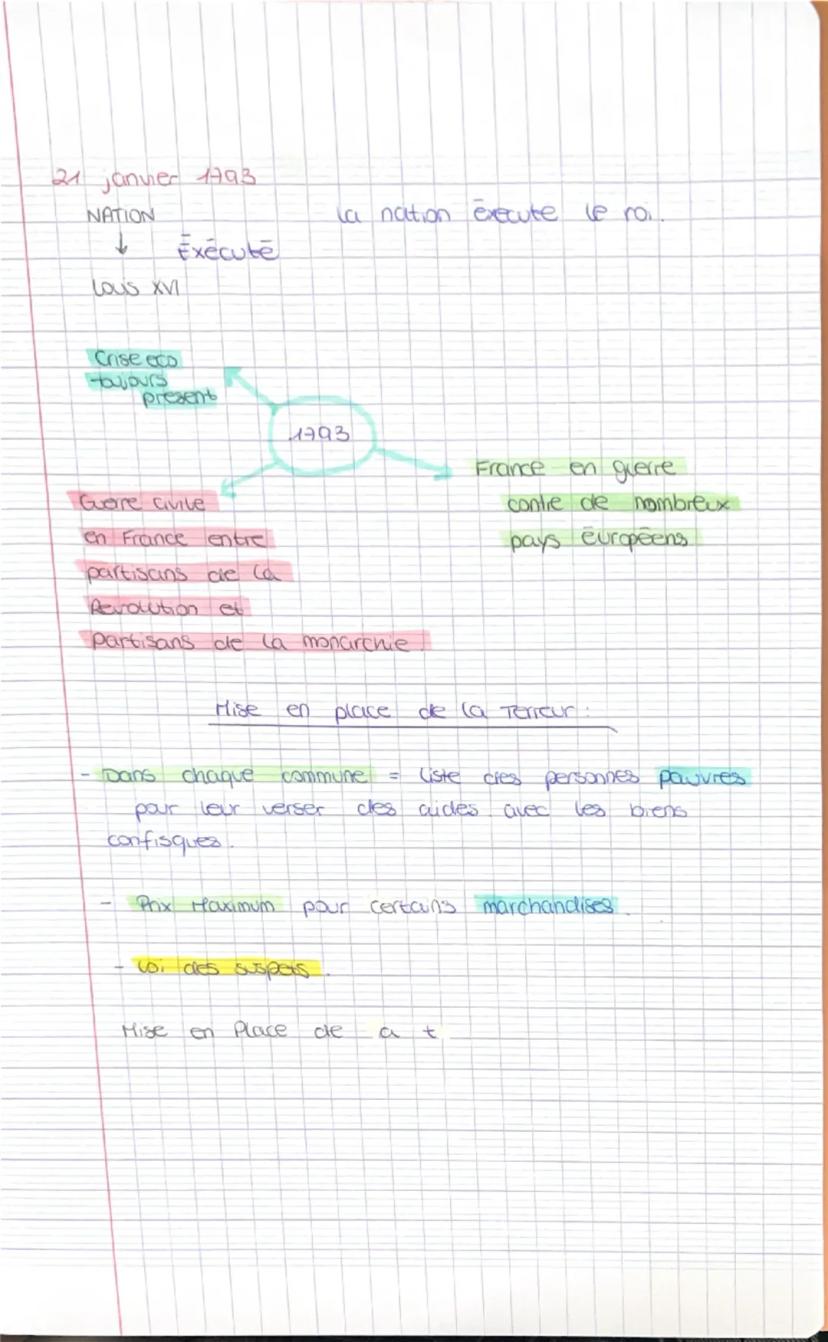 21 janvier 1793
NATION
la nation éxecute le roi.
↓ Éxécuté
Louis XVI
Crise eco
toujours
présent
1793
France en guerre
contre de nombreux
pays éuropéens
Guerre civile
en France entre
partisans de la
Revolution et
partisans de la monarchie.
Mise en place de la Terreur :
- Dans chaque commune = liste des personnes pauvres
pour leur verser des aides avec les biens
confisques.
- Prix Maximum pour certains marchandises.
- Loi des suspets.
Mise en Place de a t